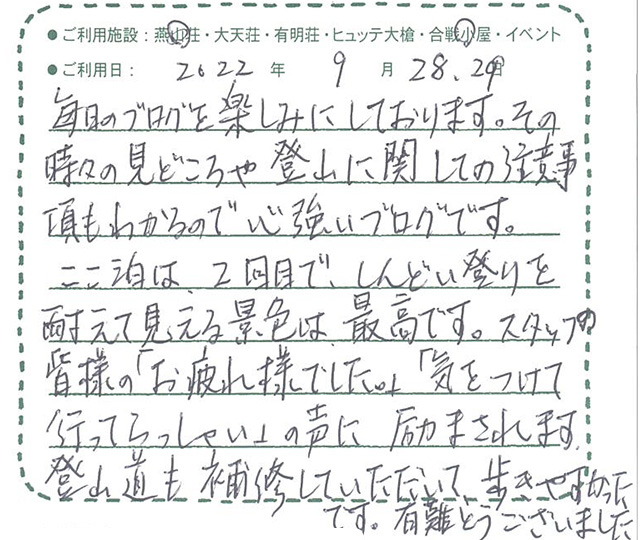 ●ご利用施設：燕山荘・大天荘・有明荘・ヒュッテ大槍・合戦小屋・イベント
●ご利用日： 2022 年 9 月 28.29日
毎日のブログを楽しみにしております。その
時々の見どころや登山に関しての注意事
項もわかるので心強いブログです。
ここ泊は、2回目で、しんどい登りを
耐えて見える景色は、最高です。スタッフの
皆様の「お疲れ様でした。」「気をつけて
行ってらっしゃい」の声に励まされます。
登山道も補修していただいて、歩きやすかった
です。有難とうございました